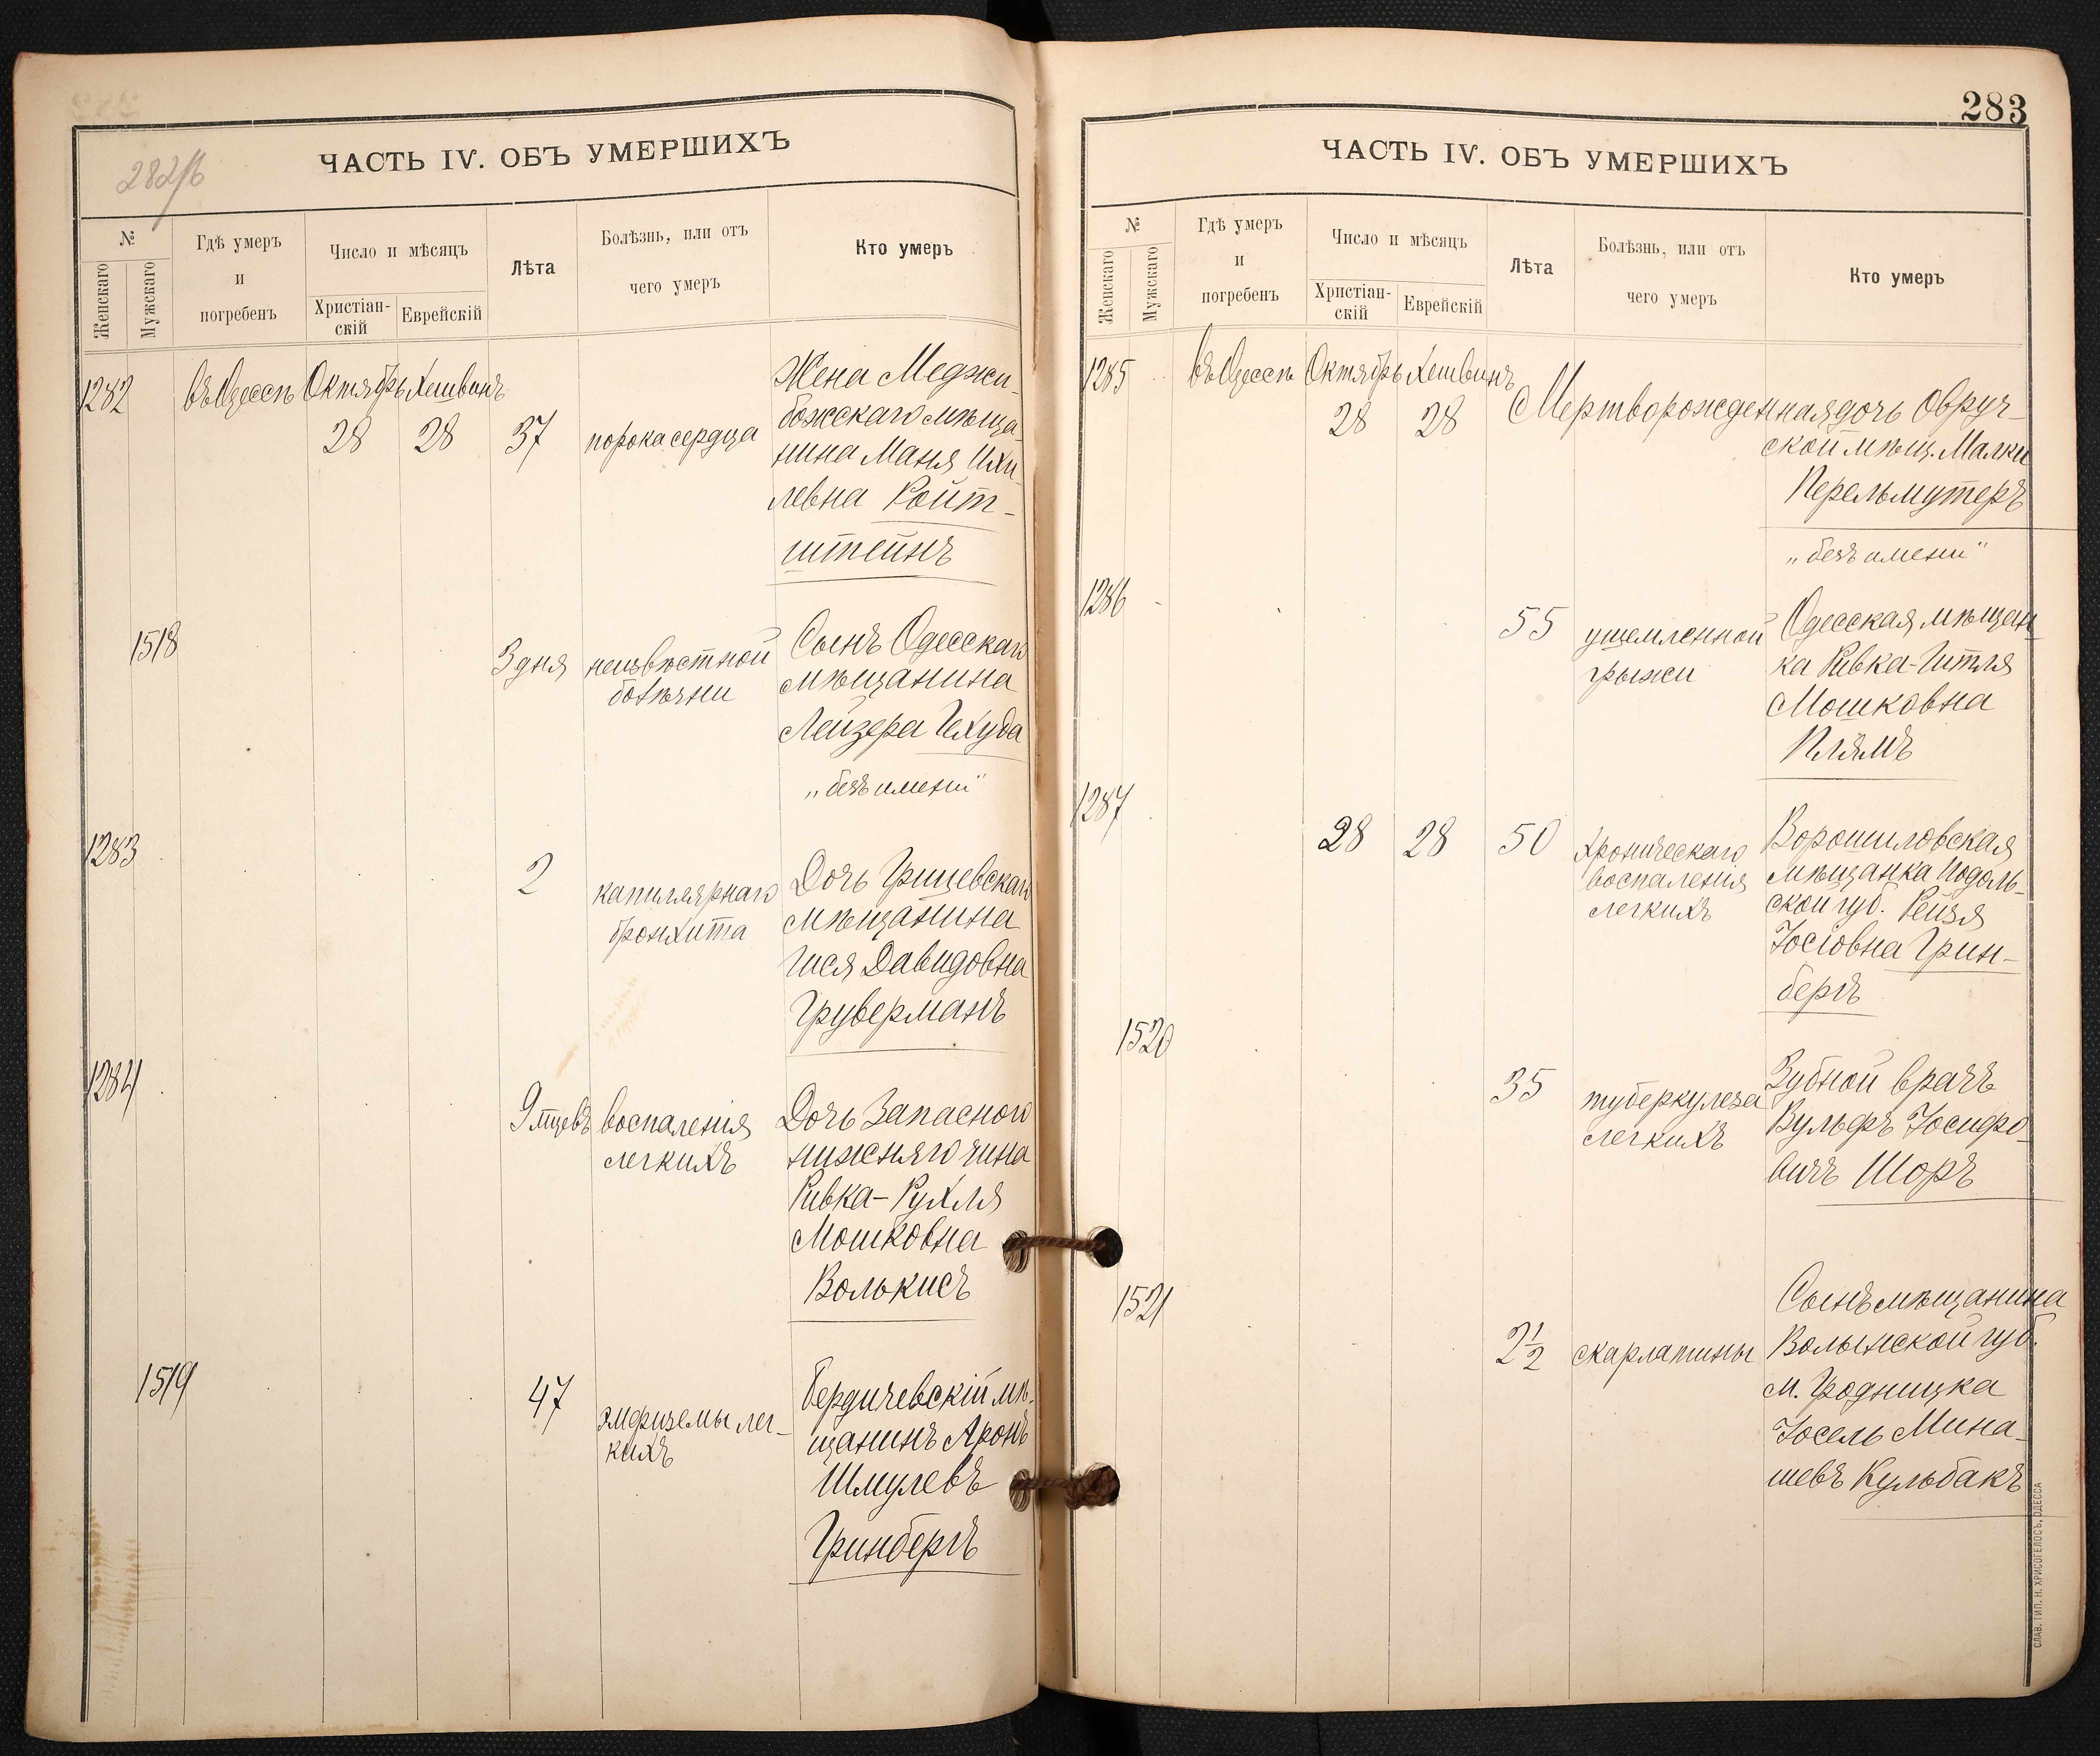 282/б
ЧАСТЬ IV. ОБЪ УМЕРШИХЪ
№
Женскаго
Мужскаго
Гдѣ умеръ
и
погребенъ
Число и мѣсяцъ
Христіан-
скій
Еврейскій
Лѣта
Болѣзнь, или отъ
чего умеръ
Кто умеръ
1282
въ Одессѣ
Октябрь
Хешванъ
28
28
37
порока сердца
Жена Меджи-
божскаго мѣща-
нина Маня Ихи-
левна Ройт-
штейнъ
1518
3 дня
неизвѣстной
болѣзни
Сынъ Одесскаго
мѣщанина
Лейзера Гехуда
„безъ имени"
1283
2
капиллярнаго
бронхита
Дочь Грицевскаго
мѣщанина
Гися Давидовна
Груверманъ
1284
9 мцевъ
воспаленія
легкихъ
Дочь Запасного
нижняго чина
Ривка-Рухля
Мошковна
Волькисъ
1519
47
эмфиземы лег-
кихъ
Бердичевскій мѣ-
щанинъ Аронъ
Шмулевъ
Гринбергъ
283
ЧАСТЬ IV. ОБЪ УМЕРШИХЪ
№
Женскаго
Мужскаго
Гдѣ умеръ
и
погребенъ
Число и мѣсяцъ
Христіан-
скій
Еврейскій
Лѣта
Болѣзнь, или отъ
чего умеръ
Кто умеръ
1285
въ Одессѣ
Октябрь
Хешванъ
28
28
Мертворожденная дочь Овруч-
ской мѣщ. Малки
Перельмутеръ
„безъ имени"
1286
55
ущемленной
грыжи
Одесская мѣщан-
ка Ривка-Гитля
Мошковна
Плямъ
1287
28
28
50
хроническаго
воспаленія
легкихъ
Ворошиловская
мѣщанка Подоль-
ской губ. Рейзя
Іосіовна Грин-
бергъ
1520
35
туберкулеза
легкихъ
Зубной врачъ
Вульфъ Іосифо-
вичъ Шоръ
1521
2 1/2
скарлатины
Сынъ мѣщанина
Волынской губ.
м. Городницка
Іосель Мина-
шевъ Кульбакъ
СЛАВ. ТИП. Н. ХРИСОГЕЛОСЪ, ОДЕССА